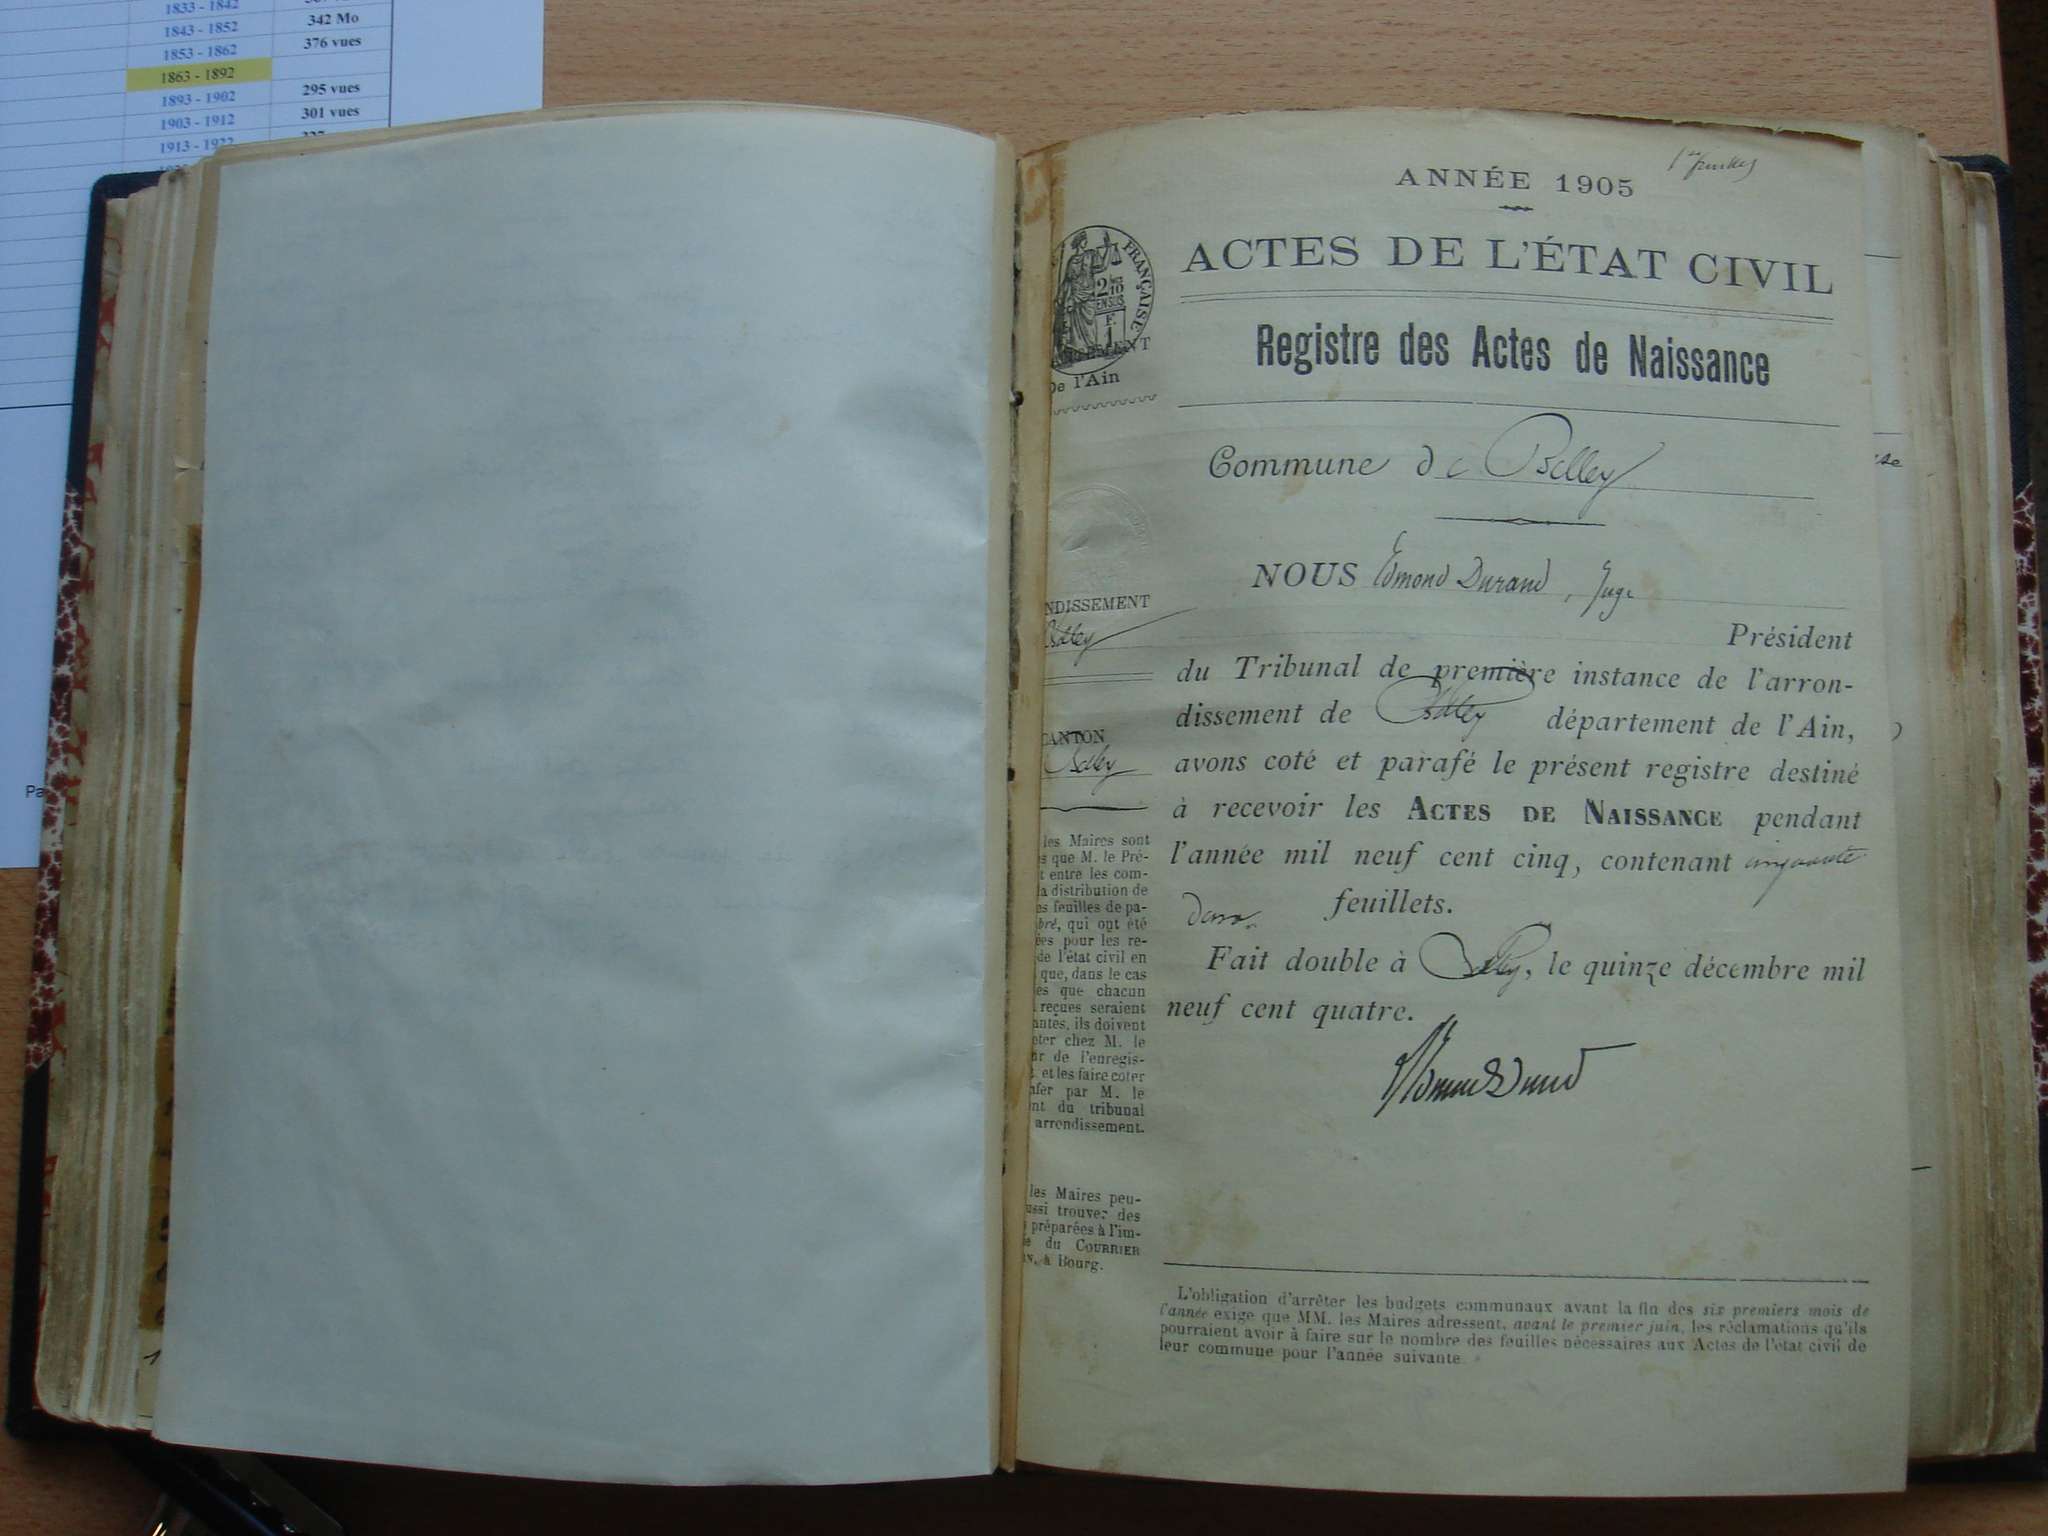 1833 - 1842
1843 - 1852 342 Mo
1853 - 1862 376 vues
1863 - 1892
1893 - 1902 295 vues
1903 - 1912 301 vues
1913 - 1922
Pa
ANNÉE 1905
ACTES DE L'ÉTAT CIVIL
Registre des Actes de Naissance
Commune de Belley
NOUS Edmond Durand, Juge
Président
du Tribunal de première instance de l'arron-
dissement de Belley département de l'Ain,
avons coté et parafé le présent registre destiné
à recevoir les ACTES DE NAISSANCE pendant
l'année mil neuf cent cinq, contenant cinquante
feuillets.
Fait double à Belley, le quinze décembre mil
neuf cent quatre.
Edmond Durand
L'obligation d'arrêter les budgets communaux avant la fin des six premiers mois de
l'année exige que MM. les Maires adressent, avant le premier juin, les réclamations qu'ils
pourraient avoir à faire sur le nombre des feuilles nécessaires aux Actes de l'état civil de
leur commune pour l'année suivante.
FRANÇAISE
2 10
EN SUS
F.
1
De l'Ain
NDISSEMENT
Belley
CANTON
Belley
les Maires sont
s que M. le Pré-
t entre les com-
a distribution de
es feuilles de pa-
bré, qui ont été
ées pour les re-
de l'état civil en
que, dans le cas
es que chacun
reçues seraient
antes, ils doivent
eter chez M. le
ur de l'enregis-
t. et les faire coter
afer par M. le
nt du tribunal
arrondissement.
les Maires peu-
ussi trouver des
préparées à l'im-
e du COURRIER
IN, à Bourg.